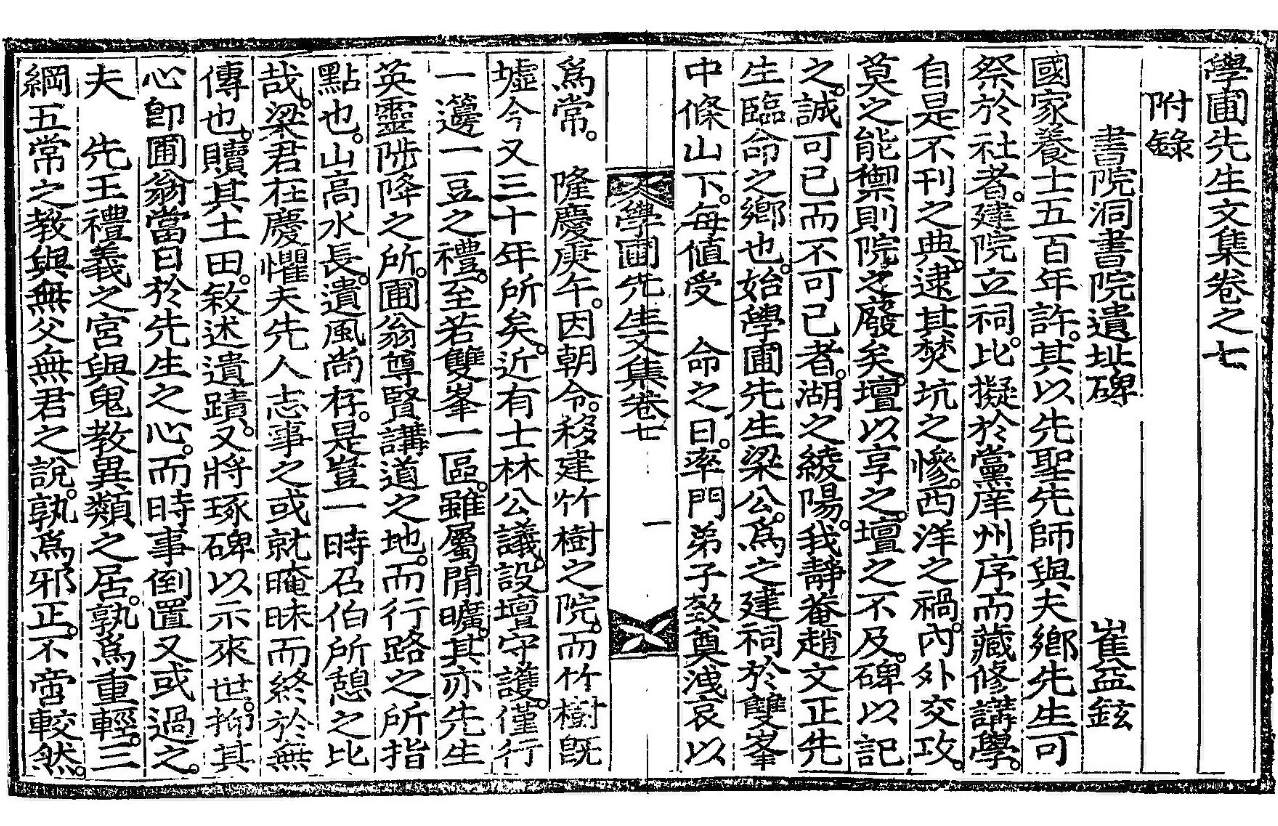 學圃先生文集卷之七
附錄
書院洞書院遺址碑 崔益鉉
國家養士五百年許。其以先聖先師與夫鄕先生可
祭於社者。建院立祠。比擬於黨庠州序而藏修講學。
自是不刊之典。逮其焚坑之慘。西洋之禍。內外交攻。
莫之能禦則院之廢矣。壇以享之。壇之不及。碑以記
之。誠可已而不可已者。湖之綾陽。我靜菴趙文正先
生臨命之鄕也。始學圃先生梁公。爲之建祠於雙峯
中條山下。每値受 命之日。率門弟子致奠洩哀以
學圃先生文集卷七 一
爲常。 隆慶庚午。因朝令。移建竹樹之院。而竹樹旣
墟今又三十年所矣。近有士林公議。設壇守護。僅行
一籩一豆之禮。至若雙峯一區。雖屬閒曠。其亦先生
英靈陟降之所。圃翁尊賢講道之地。而行路之所指
點也。山高水長。遺風尙存。是豈一時召伯所憩之比
哉。梁君在慶懼夫先人志事之或就晻昧而終於無
傳也。贖其土田。敍述遺蹟。又將琢碑以示來世。抑其
心卽圃翁當日於先生之心。而時事倒置又或過之。
夫 先王禮義之宮與鬼教異類之居。孰爲重輕。三
綱五常之教與無父無君之說。孰爲邪正。不啻較然。